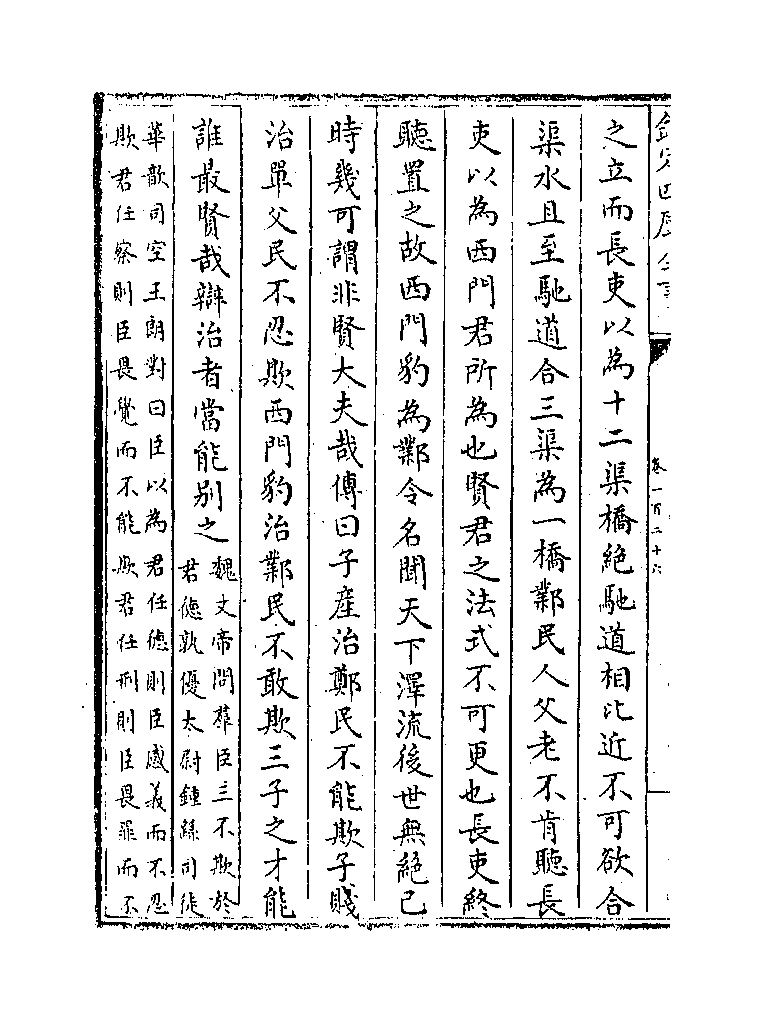 欽定四庫全書
卷一百二十六
之立而長吏以為十二渠橋絶馳道相比近不可欲合
渠水且至馳道合三渠為一橋鄴民人父老不肯聽長
吏以為西門君所為也賢君之法式不可更也長吏終
聽置之故西門豹為鄴令名聞天下澤流後世無絶已
時幾可謂非賢大夫哉傳曰子產治鄭民不能欺子賤
治單父民不忍欺西門豹治鄴民不敢欺三子之才能
誰最賢哉辯治者當能别之
魏文帝問羣臣三不欺於
君德孰優太尉鍾繇司徒
華歆司空王朗對曰臣以為君任德則臣感義而不忍
欺君任察則臣畏覺而不能欺君任刑則臣畏罪而不